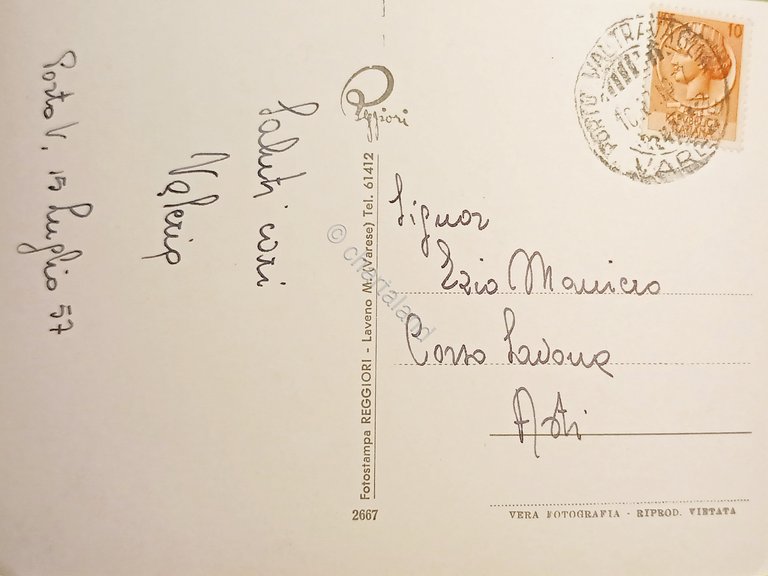 Porto V, 15 Luglio 57
Saluti cari
Valeria
Reggiori
Fotostampa REGGIORI - Laveno M. (Varese) Tel. 61412
2667
10
PORTO VALTRAVAGLIA
VAR
Signor
Ezio
Corso Savona
Asti
VERA FOTOGRAFIA - RIPROD. VIETATA
© cherialand